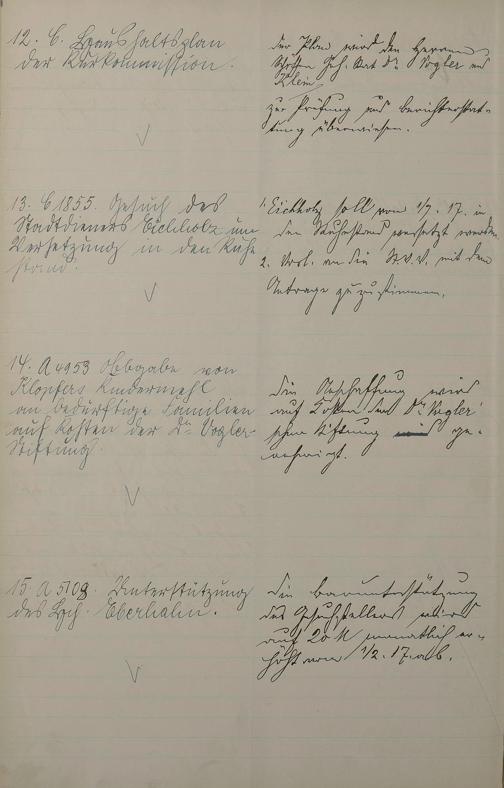 12. C. Haushaltsplan
der Kurkommission.
Der Plan wird den Herren
Schöffen Joh. Dr. Vogler und
Klein
zur Prüfung und Berichterstat-
tung überwiesen.
13. C 1855. Gesuch des
Stadtdieners Eichholz um
Versetzung in den Ruhe
stand.
1. Eichholz soll vom 1/7. 17. in
den Ruhestand versetzt werden
2. Vorl. an die St.V.V. mit dem
Antrage zuzustimmen.
14. A 4953 Abgabe von
Klopfers Kindermehl
an bedürftige Familien
auf Kosten der Dr. Vogler
Stiftung.
Die Beschaffung wird
auf Kosten der Dr. Vogler'
schen Stiftung ge-
nehmigt.
15. A 5108. Unterstützung
des Hch. Eberhahn.
Die Barunterstützung
des Gesuchstellers wird
auf 20 M monatlich er-
höht vom 1/2. 17. ab.